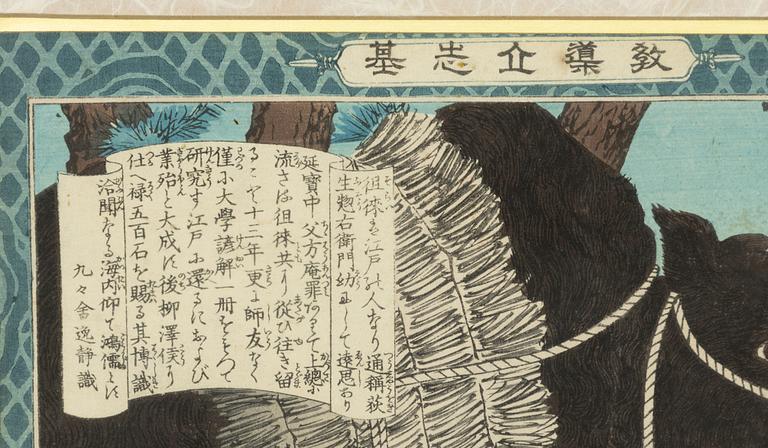 教導立志基
徂徠は江戸の人なり通稱荻
生惣右衛門幼にして遠思あり
延寶中父方庵罪ありて上總に
流さる徂徠共に從ひ往き留
ること十三年更に師友なく
僅に大學諺解一冊をもつて
研究す江戸に還るにおよび
業殆と大成に後柳澤侯に
仕へ禄五百石を賜る其博識
洽聞なる海内仰て鴻儒とす
九々舎逸静識